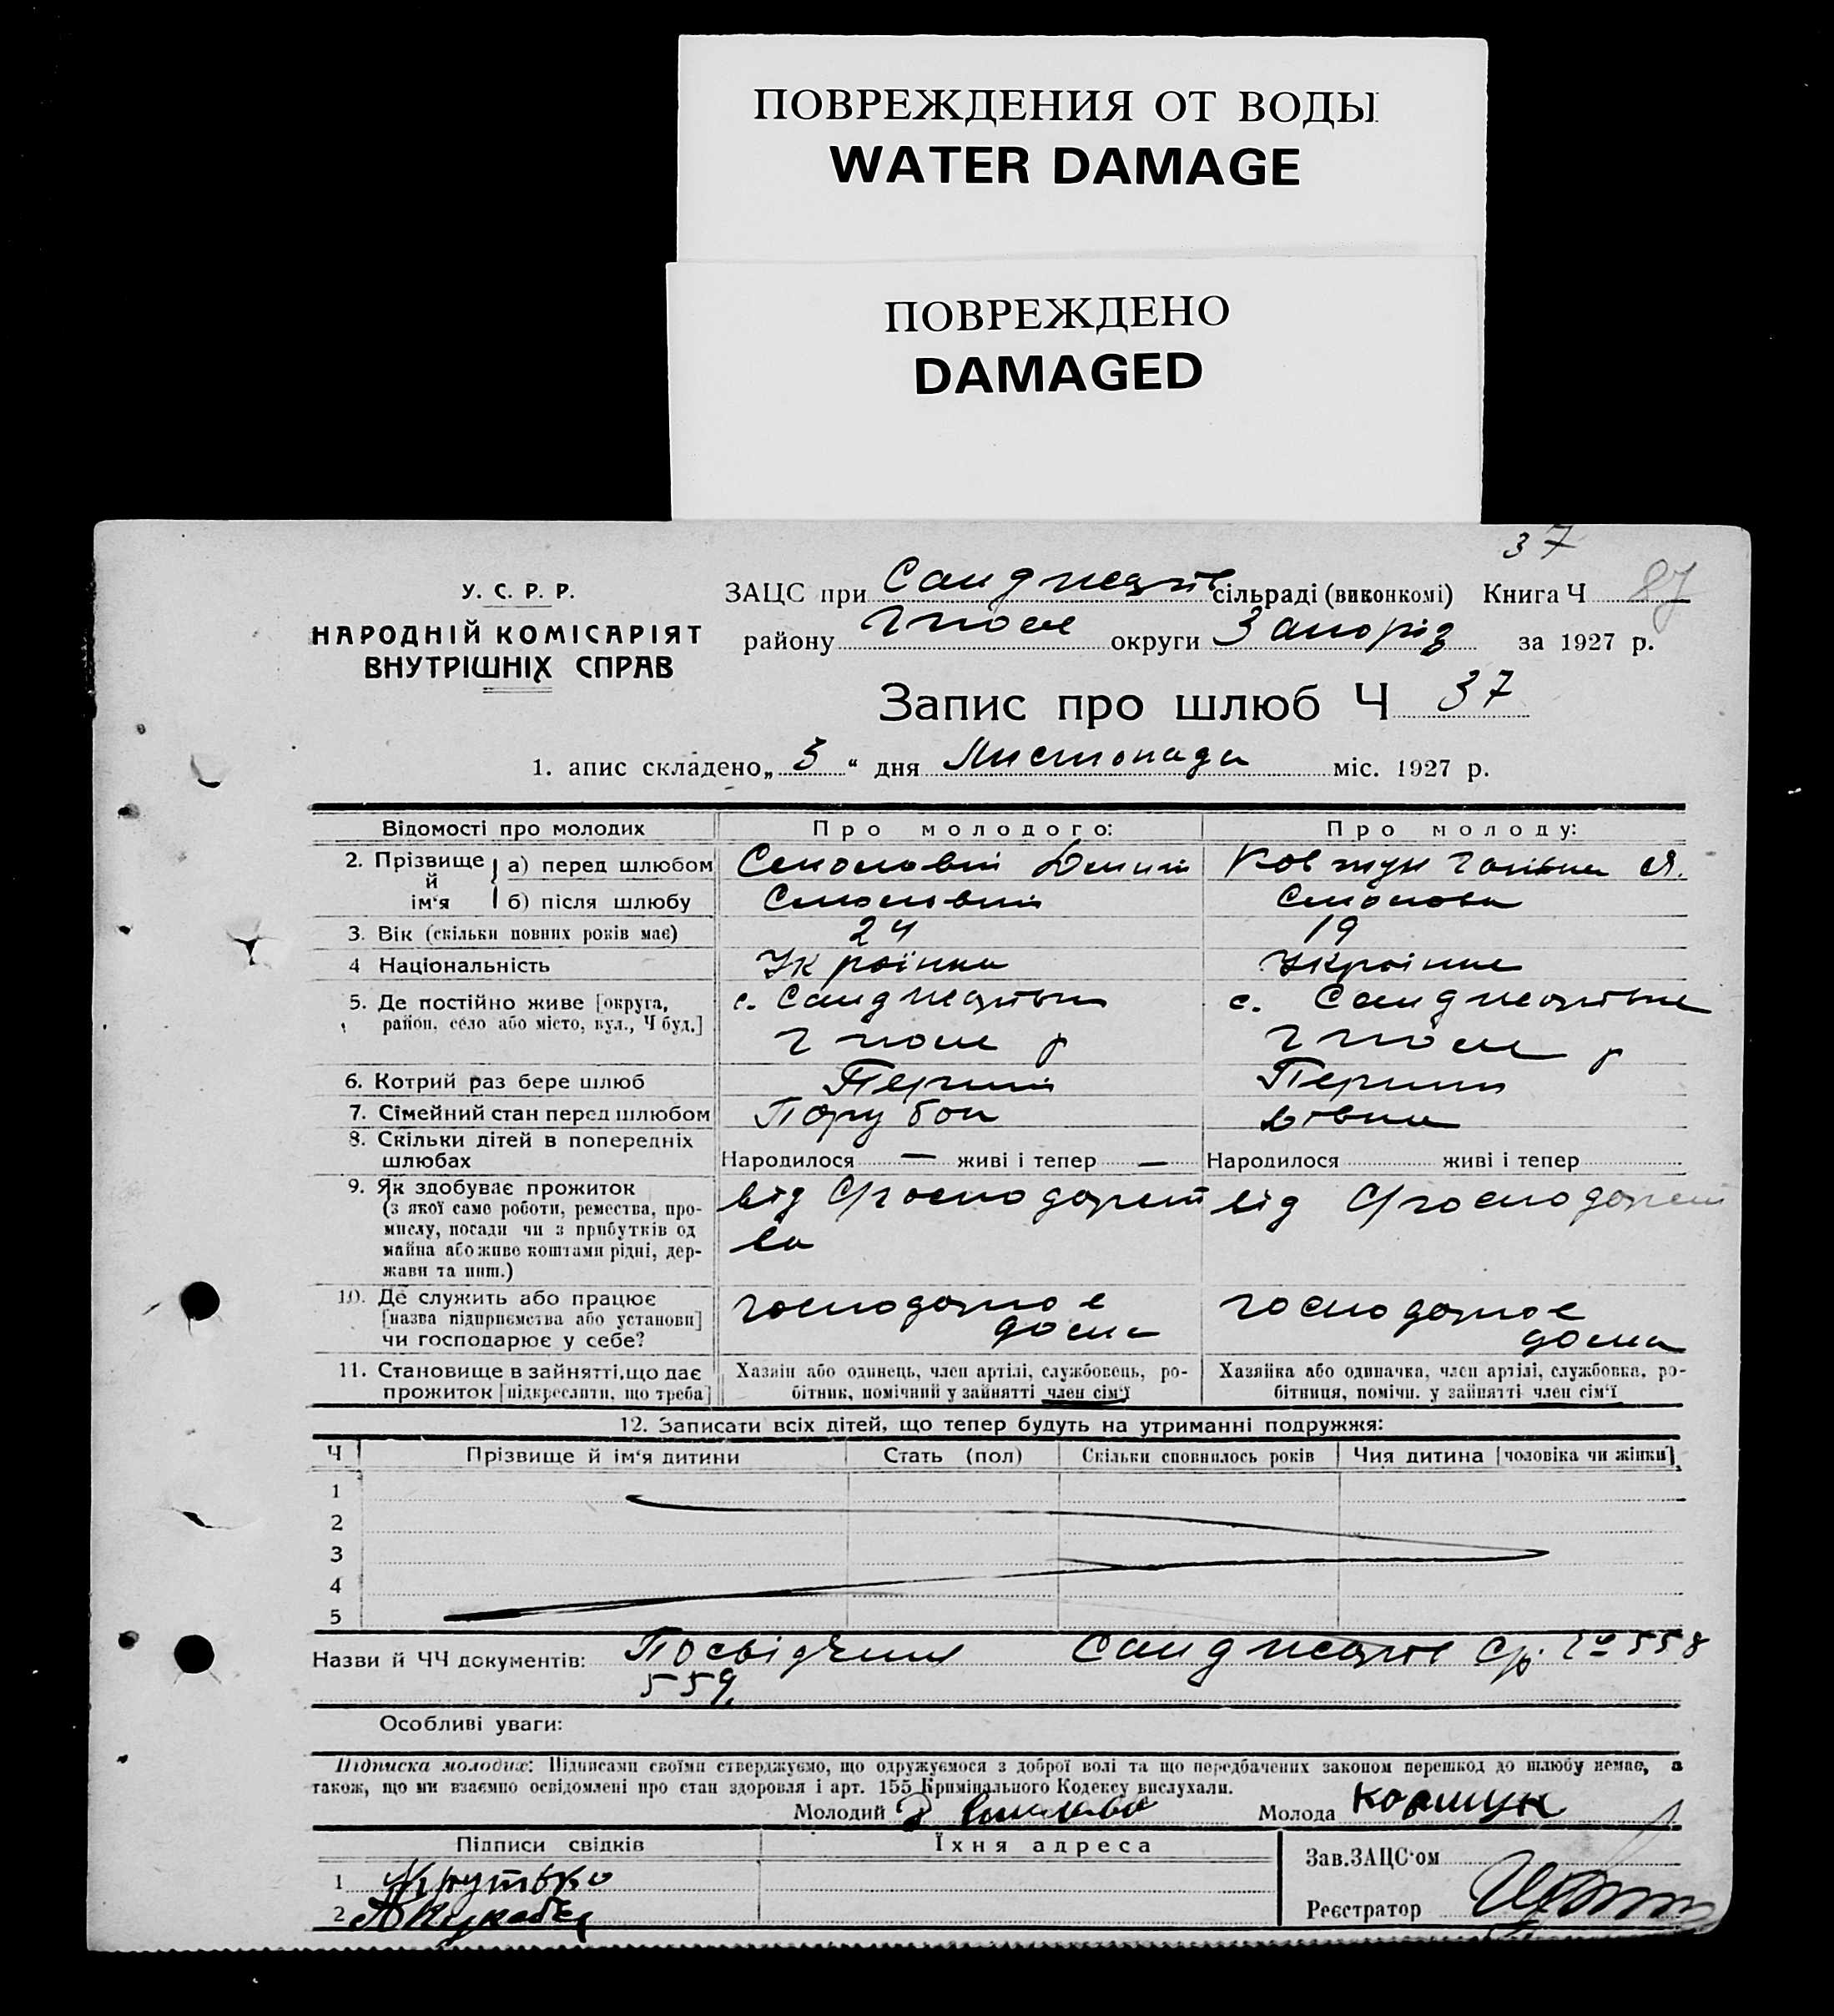 ПОВРЕЖДЕНИЯ ОТ ВОДЫ
WATER DAMAGE
ПОВРЕЖДЕНО
DAMAGED
37
У. С. Р. Р.
НАРОДНІЙ КОМІСАРІЯТ
ВНУТРІШНІХ СПРАВ
ЗАЦС при сільраді (виконкомі) Книга Ч 87
району округи Запоріз за 1927 р.
Запис про шлюб Ч 37
1. апис складено „ " дня Листопада міс. 1927 р.
Відомості про молодих Про молодого: Про молоду:
2. Прізвище й ім'я а) перед шлюбом Ковтун
б) після шлюбу
3. Вік (скільки повних років має) 24 19
4 Національність Україн Україн
5. Де постійно живе [округа, с. с.
район, село або місто, вул., Ч буд.] р р
6. Котрий раз бере шлюб Перший Перший
7. Сімейний стан перед шлюбом Парубок
8. Скільки дітей в попередніх
шлюбах Народилося — живі і тепер — Народилося живі і тепер
9. Як здобуває прожиток
(з якої саме роботи, ремества, про- від від
мислу, посади чи з прибутків од
майна або живе коштами рідні, дер- ва
жави та инш.)
10. Де служить або працює
[назва підприємства або установи] господарює господарює
чи господарює у себе? дома дома
11. Становище в зайнятті, що дає Хазяїн або одинець, член артілі, службовець, ро- Хазяйка або одиначка, член артілі, службовка, ро-
прожиток [підкреслити, що треба] бітник, помічний у зайнятті член сім'ї бітниця, помічн. у зайнятті член сім'ї
12. Записати всіх дітей, що тепер будуть на утриманні подружжя:
Ч Прізвище й ім'я дитини Стать (пол) Скільки сповнилось років Чия дитина [чоловіка чи жінки]
1
2
3
4
5
Назви й ЧЧ документів: Посвідчення 558
559
Особливі уваги:
Підписка молодих: Підписами своїми стверджуємо, що одружуємося з доброї волі та що передбачених законом перешкод до шлюбу немає, а
також, що ми взаємно освідомлені про стан здоровля і арт. 155 Кримінального Кодексу вислухали.
Молодий Молода Ковтун
Підписи свідків Їхня адреса
Зав. ЗАЦС'ом
1 Крутько
2
Реєстратор